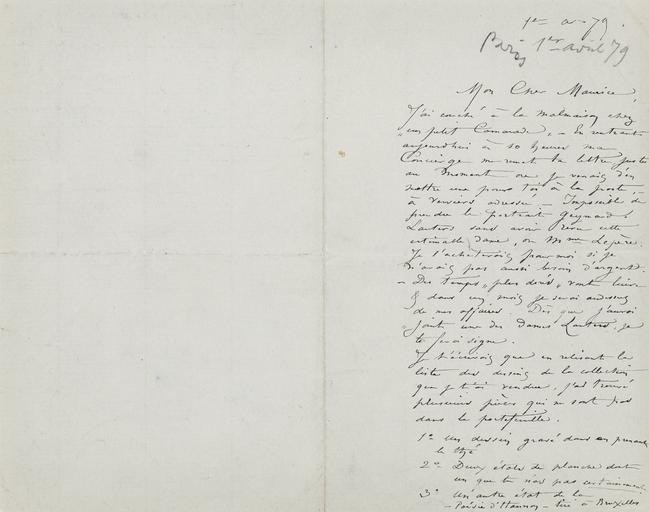 1er a. 79.
Paris 1er avril 79
Mon Cher Maurice,
J'ai couché à la Malmaison chez
"un petit Camarade", – En rentrant
aujourd'hui à 10 heures ma
Concierge me remet ta lettre juste
au moment où je venais d'en
mettre une pour toi à la poste, –
à Verviers adressée. – Impossible de
prendre le portrait
Lauters sans avoir revu cette
estimable Dame, ou Mme Lepère.
Je l'achèterais pour moi si je
n'avais pas aussi besoin d'argent.
– Des temps "plus dorés" vont luire
& dans un mois je serai au dessus
de mes affaires. Dès que j'aurai
"joint" une des Dames Lauters, je
te ferai signe.
Je t'écrivais que en relisant la
liste des dessins de la collection
que je t'ai vendue, j'ai trouvé
plusieurs pièces qui ne sont pas
dans le portefeuille.
1o Un dessin gravé dans en prenant
le thé
2o Deux états de planche dont
un que tu n'as pas certainement
3o Un autre état de la
– Poésie d'Hannon – tiré à Bruxelles